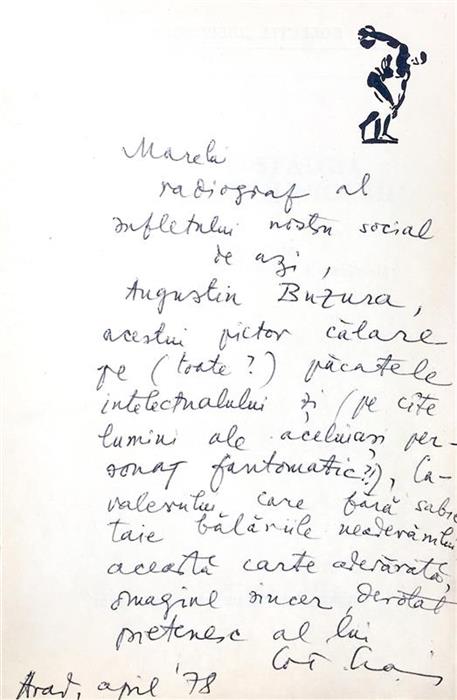 Marelui
radiograf al
sufletului nostru social
de azi,
Augustin Buzura,
acestui pictor călare
pe (toate?) păcatele
intelectualului și (pe cîte
lumini ale aceluiași per-
sonaj fantomatic?!), Ca-
valerului, care fără sabie
taie bălăriile neadevărului
această carte adevărată,
omagiul sincer, devotat
prietenesc al lui
Arad, april '78